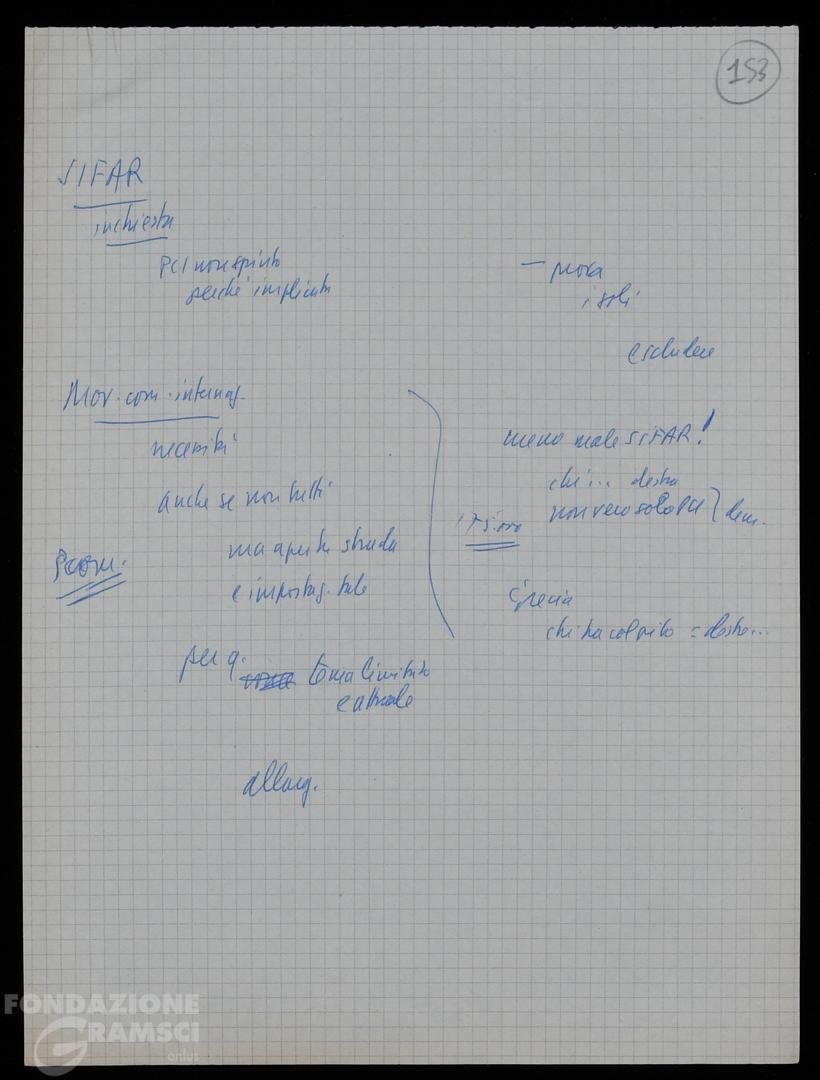 153
SIFAR
inchiesta
PCI non spinto
perché implicato
— prova
i soli
escludere
Mov. com. internaz.
necessità
anche se non tutti
ma aperta strada
e impostaz. tale
per q. tema limitato
e attuale
allarg.
meno male SIFAR!
chi... destra
non vero solo PCI } dem.
175.000
Grecia
chi ha colpito = destra...
FONDAZIONE
GRAMSCI
onlus